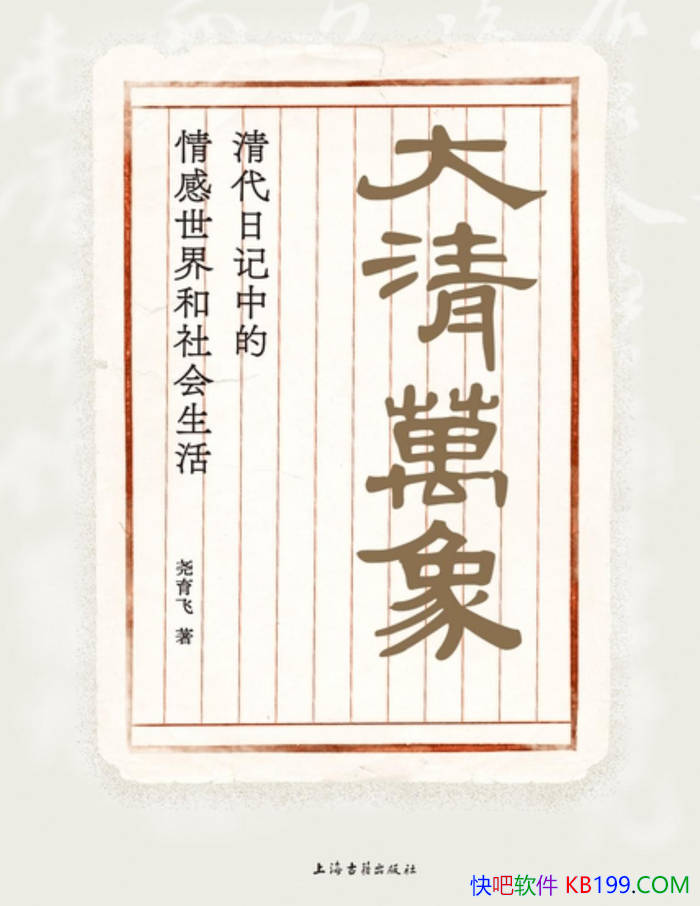 大清萬象
清代日记中的
情感世界和社会生活
尧育飞 著
上海古籍出版社
快吧软件 KB199.com